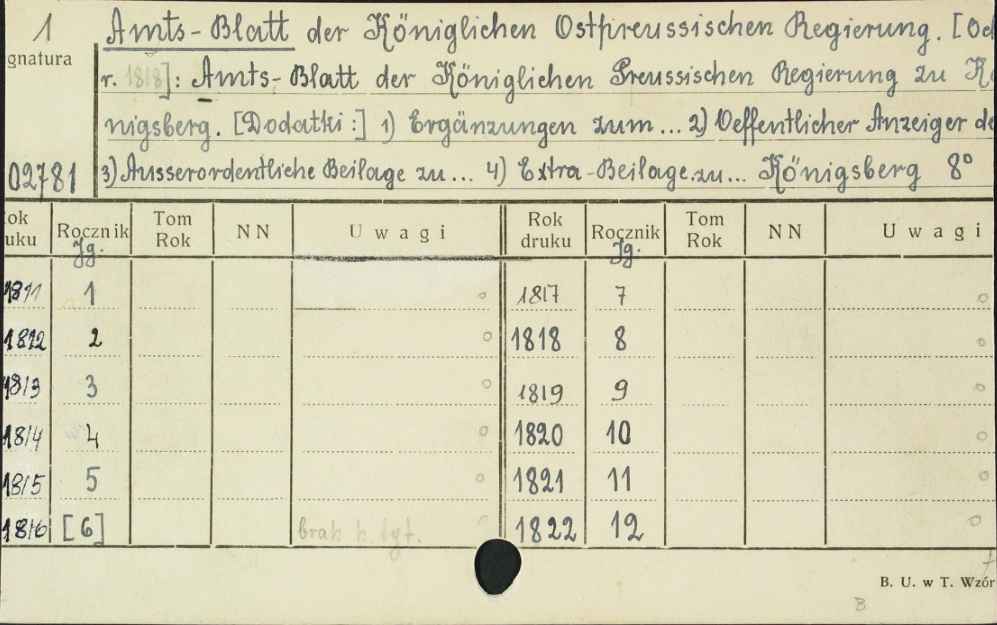 1
gnatura
02781
Amts-Blatt der Königlichen Ostpreussischen Regierung. [Od
r. 1818]: Amts-Blatt der Königlichen Preussischen Regierung zu Kö
nigsberg. [Dodatki:] 1) Ergänzungen zum... 2) Oeffentlicher Anzeiger de
3) Ausserordentliche Beilage zu... 4) Extra-Beilage zu... Königsberg 8°
ok uku Rocznik Jg. Tom Rok NN Uwagi Rok druku Rocznik Jg. Tom Rok NN Uwagi
1811 1 1817 7
1812 2 1818 8
1813 3 1819 9
1814 4 1820 10
1815 5 1821 11
1816 [6] brak k. tyt. 1822 12
B. U. w T. Wzór
B.